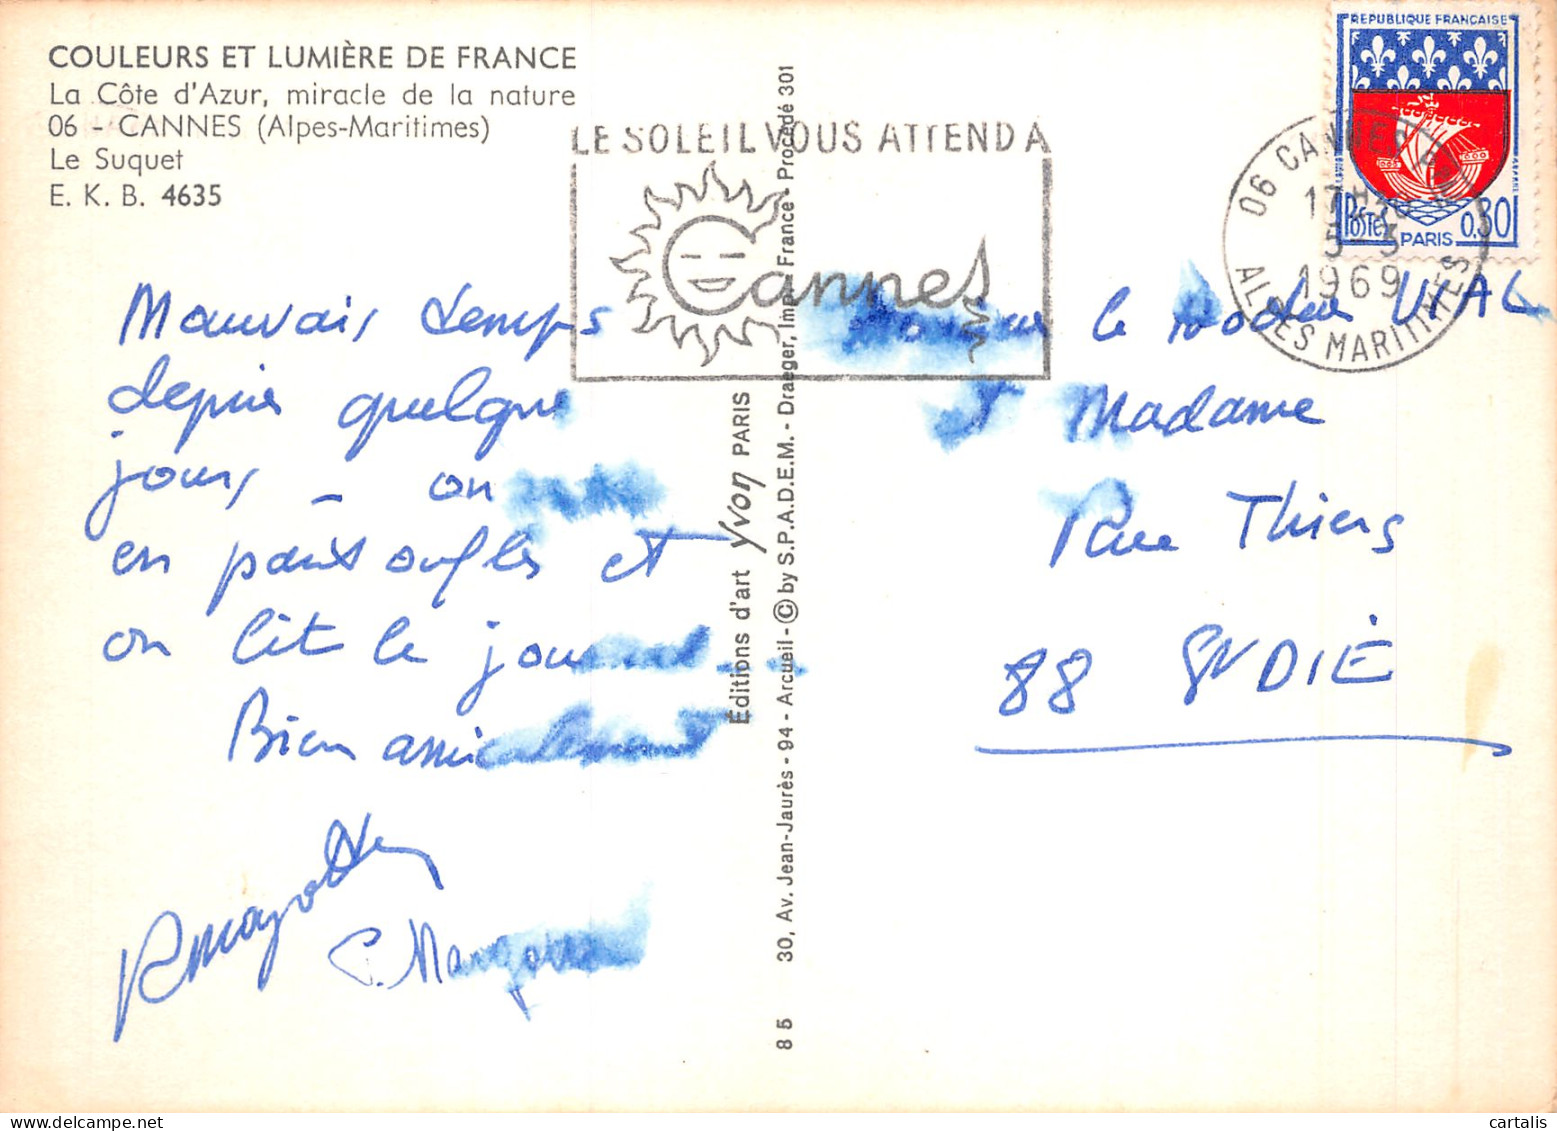 COULEURS ET LUMIÈRE DE FRANCE
La Côte d'Azur, miracle de la nature
06 - CANNES (Alpes-Maritimes)
Le Suquet
E. K. B. 4635
LE SOLEIL VOUS ATTEND A
Cannes
REPUBLIQUE FRANÇAISE
POSTES 0,30
PARIS
06 CANNES
17H
5-3
1969
ALPES MARITIMES
Mauvais temps
depuis quelques
jours, - on
en pantoufles et
on lit le journal
Bien amicalement
Editions d'art Yvon PARIS
30, Av. Jean-Jaurès - 94 - Arcueil - © by S.P.A.D.E.M. - Draeger, Imp. France - Procédé 301
8 5
le Docteur VIAL
Madame
Rue Thiers
88 St DIÉ
cartalis